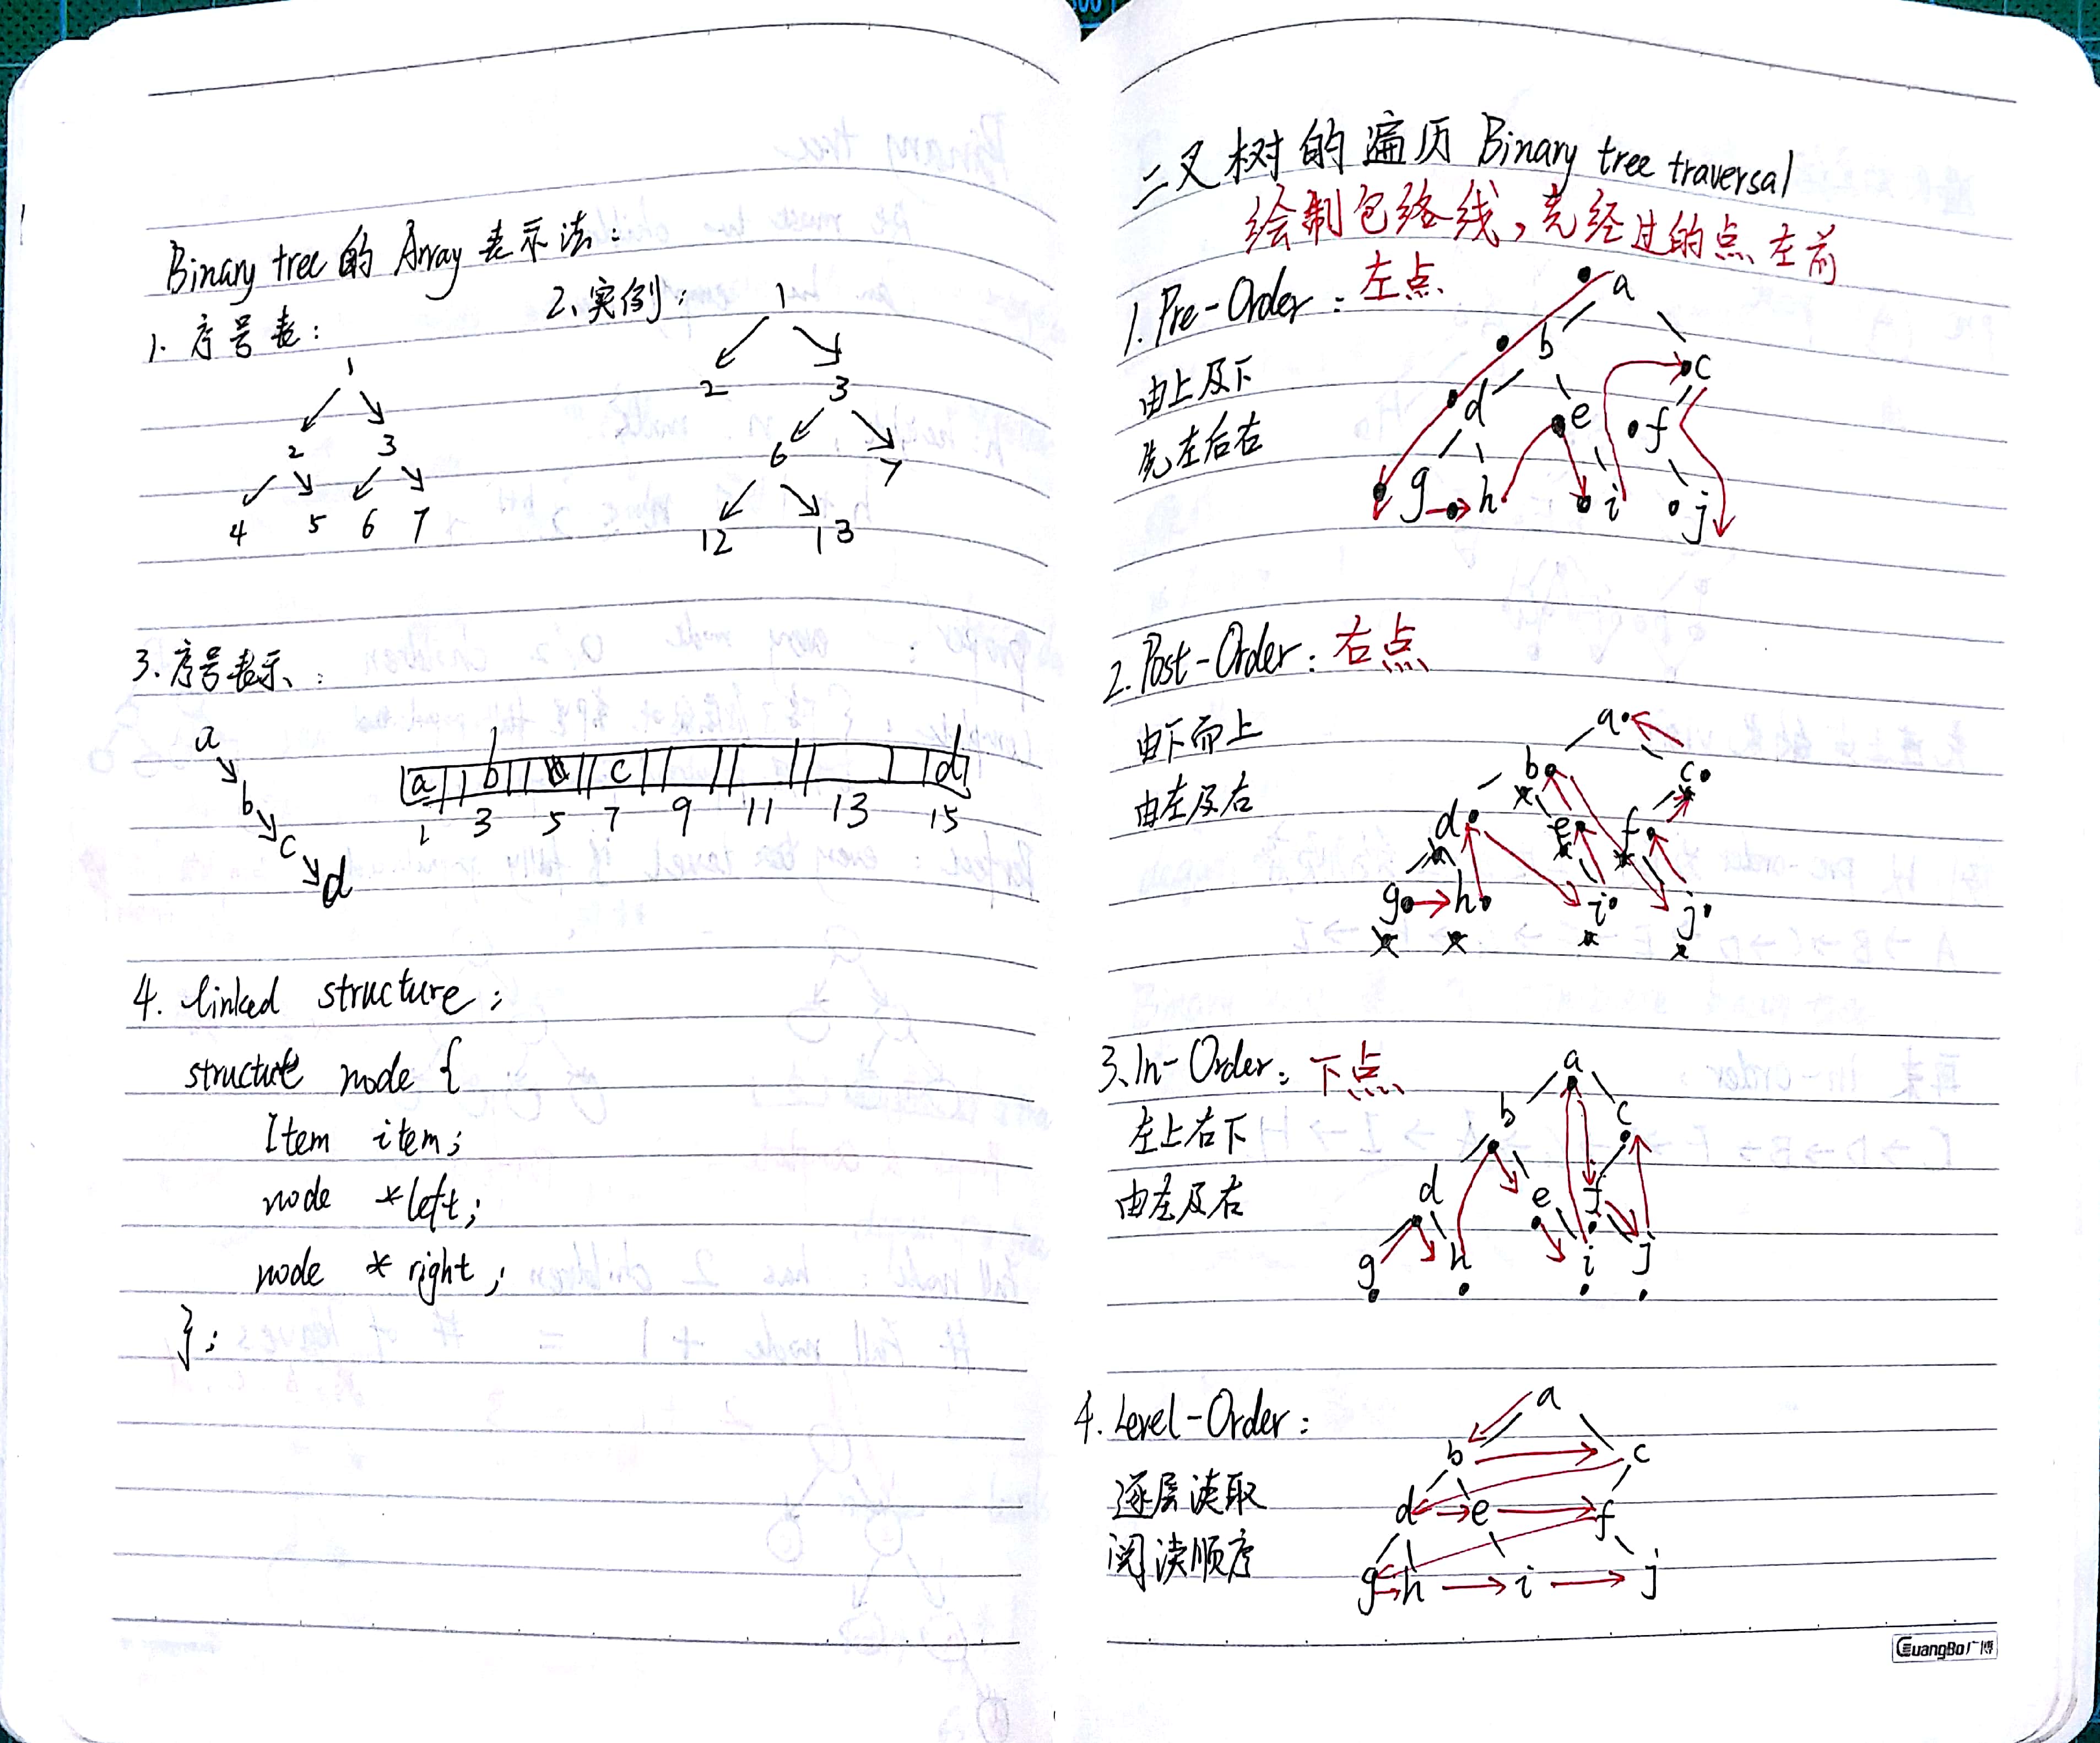 Binary tree 的 Array 表示法：
1. 序号表：
2、实例：
1
2 3
4 5 6 7
1
2 3
6 7
12 13
3. 序号表示：
a
b
c
d
a b c d
1 3 5 7 9 11 13 15
4. linked structure：
structure node {
Item item;
node *left;
node * right;
};
二叉树的遍历 Binary tree traversal
绘制包络线，先经过的点在前
1. Pre-Order：左点
由上及下
先左后右
a
b c
d e f
g h i j
2. Post-Order：右点
由下而上
由左及右
a
b c
d e f
g h i j
3. In-Order：下点
左上右下
由左及右
a
b c
d e f
g h i j
4. Level-Order：
逐层读取
阅读顺序
a
b c
d e f
g h i j
GuangBo广博